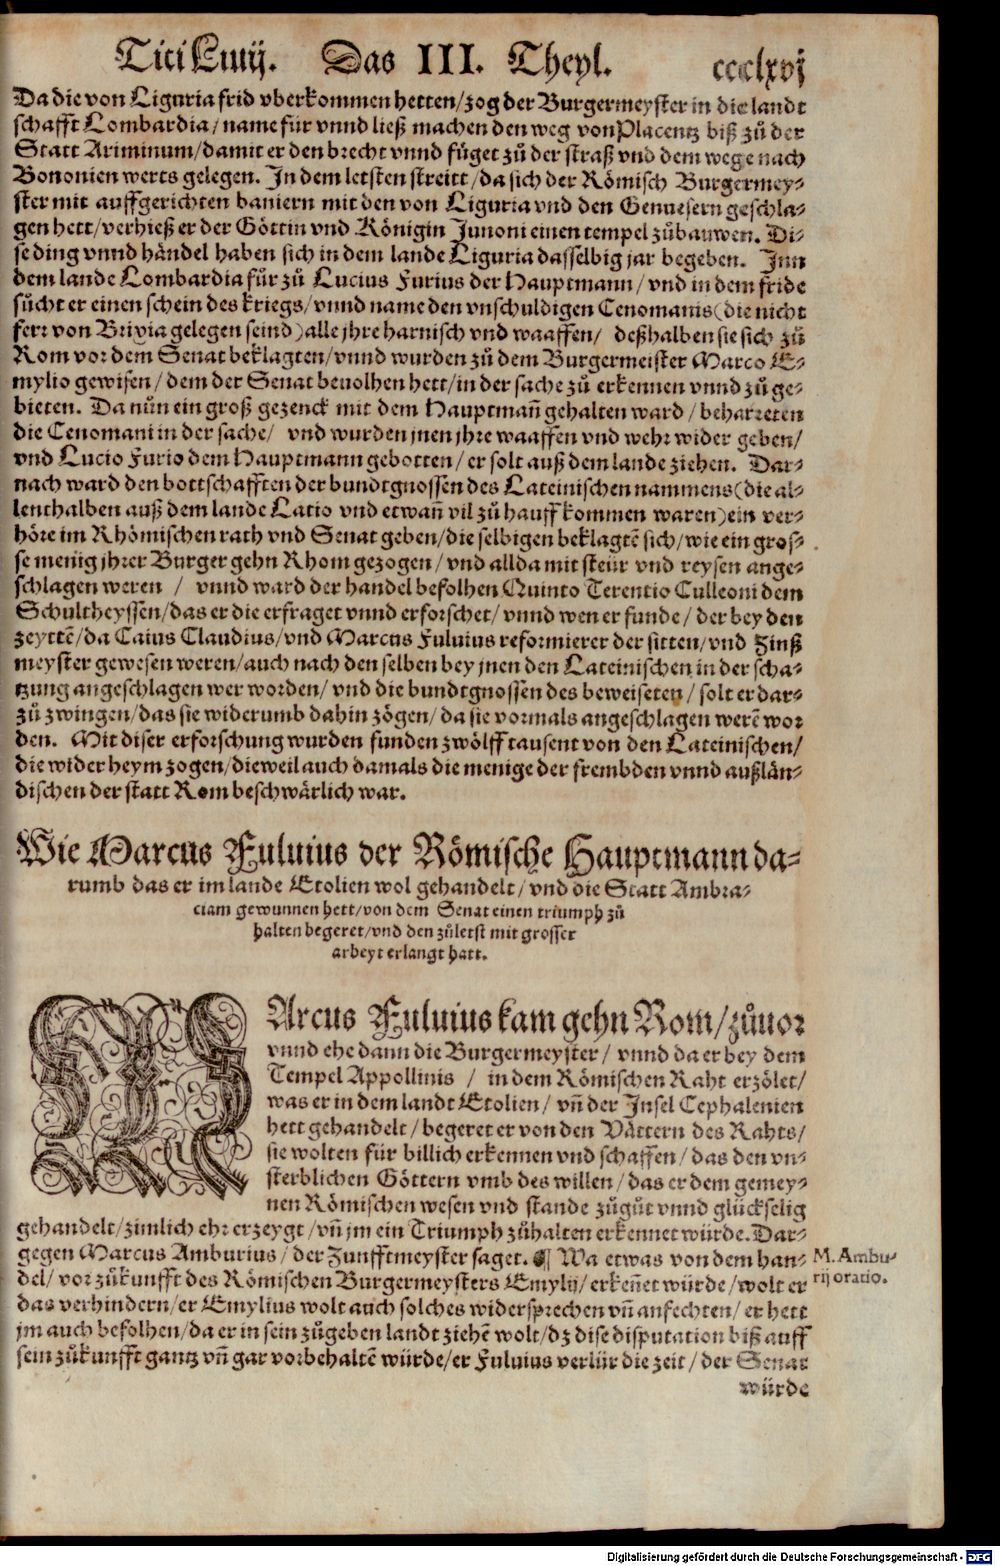 Titi Liuij. Das III. Theyl. ccclxvj
Da die von Liguria frid vberkommen hetten/ zog der Burgermeyster in die landt
schafft Lombardia/ name für vnnd ließ machen den weg von Placentz biß zů der
Statt Ariminum/ damit er den brecht vnnd füget zů der straß vnd dem wege nach
Bononien werts gelegen. In dem letsten streitt/ da sich der Römisch Burgermey⸗
ster mit auffgerichten baniern mit den von Liguria vnd den Genuesern geschla⸗
gen hett/ verhieß er der Göttin vnd Königin Junoni einen tempel zůbauwen. Di⸗
se ding vnnd händel haben sich in dem lande Liguria dasselbig jar begeben. Inn
dem lande Lombardia für zů Lucius Furius der Hauptmann/ vnd in dem fride
sůcht er einen schein des kriegs/ vnnd name den vnschuldigen Cenomanis (die nicht
ferr von Brixia gelegen seind) alle jhre harnisch vnd waaffen/ deßhalben sie sich zů
Rom vor dem Senat beklagten/ vnnd wurden zů dem Burgermeister Marco E⸗
mylio gewisen/ dem der Senat beuolhen hett/ in der sache zů erkennen vnnd zů ge⸗
bieten. Da nůn ein groß gezenck mit dem Hauptmañ gehalten ward/ beharreten
die Cenomani in der sache/ vnd wurden jnen jhre waaffen vnd wehr wider geben/
vnd Lucio Furio dem Hauptmann gebotten/ er solt auß dem lande ziehen. Dar⸗
nach ward den bottschafften der bundtgnossen des Lateinischen nammens (die al⸗
lenthalben auß dem lande Latio vnd etwañ vil zů hauff kommen waren) ein ver⸗
höre im Rhömischen rath vnd Senat geben/ die selbigen beklagtē sich/ wie ein gros⸗
se menig jhrer Burger gehn Rhom gezogen/ vnd allda mit steür vnd reysen ange⸗
schlagen weren/ vnnd ward der handel befolhen Quinto Terentio Culleoni dem
Schultheyssen/ das er die erfraget vnnd erforschet/ vnnd wen er funde/ der bey den
zeyttē/ da Caius Claudius/ vnd Marcus Fuluius reformierer der sitten/ vnd Zinß
meyster gewesen weren/ auch nach den selben bey jnen den Lateinischen in der scha⸗
tzung angeschlagen wer worden/ vnd die bundtgnossen des beweiseten/ solt er dar⸗
zů zwingen/ das sie widerumb dahin zögen/ da sie vormals angeschlagen werē wor
den. Mit diser erforschung wurden funden zwölff tausent von den Lateinischen/
die wider heym zogen/ dieweil auch damals die menige der frembden vnnd außlän⸗
dischen der statt Rom beschwärlich war.
Wie Marcus Fuluius der Römische Hauptmann da⸗
rumb das er im lande Etolien wol gehandelt/ vnd die Statt Ambra⸗
ciam gewunnen hett/ von dem Senat einen triumph zů
halten begeret/ vnd den zůletst mit grosser
arbeyt erlangt hatt.
MArcus Fuluius kam gehn Rom/ zůuor
vnnd ehe dann die Burgermeyster/ vnnd da er bey dem
Tempel Appollinis/ in dem Römischen Raht erzölet/
was er in dem landt Etolien/ vñ der Insel Cephalenien
hett gehandelt/ begeret er von den Vättern des Rahts/
sie wolten für billich erkennen vnd schaffen/ das den vn⸗
sterblichen Göttern vmb des willen/ das er dem gemey⸗
nen Römischen wesen vnd stande zůgůt vnnd glückselig
gehandelt/ zimlich ehr erzeygt/ vñ jm ein Triumph zůhalten erkennet würde. Dar⸗
gegen Marcus Amburius/ der Zunfftmeyster saget. ¶ Wa etwas von dem han⸗
del/ vor zůkunfft des Römischen Burgermeysters Emylij/ erkeñet würde/ wolt er
das verhindern/ er Emylius wolt auch solches widersprechen vñ anfechten/ er hett
jm auch befolhen/ da er in sein zůgeben landt ziehē wolt/ dz dise disputation biß auff
sein zůkunfft gantz vñ gar vorbehaltē würde/ er Fuluius verlür die zeit/ der Senat
würde
M. Ambu⸗
rij oratio.
Digitalisierung gefördert durch die Deutsche Forschungsgemeinschaft - DFG